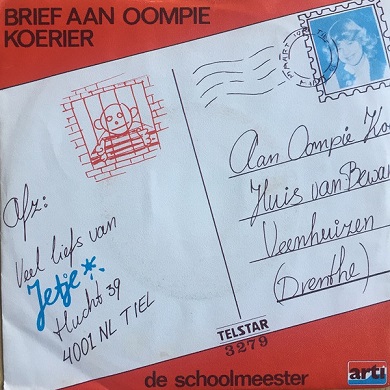 BRIEF AAN OOMPIE
KOERIER
Afz:
Veel liefs van
Jetje
Hucht 39
4001 NL TIEL
Aan Oompie Ko
Huis van Bewa
Veenhuizen
(Drenthe)
TELSTAR
3279
de schoolmeester
arti